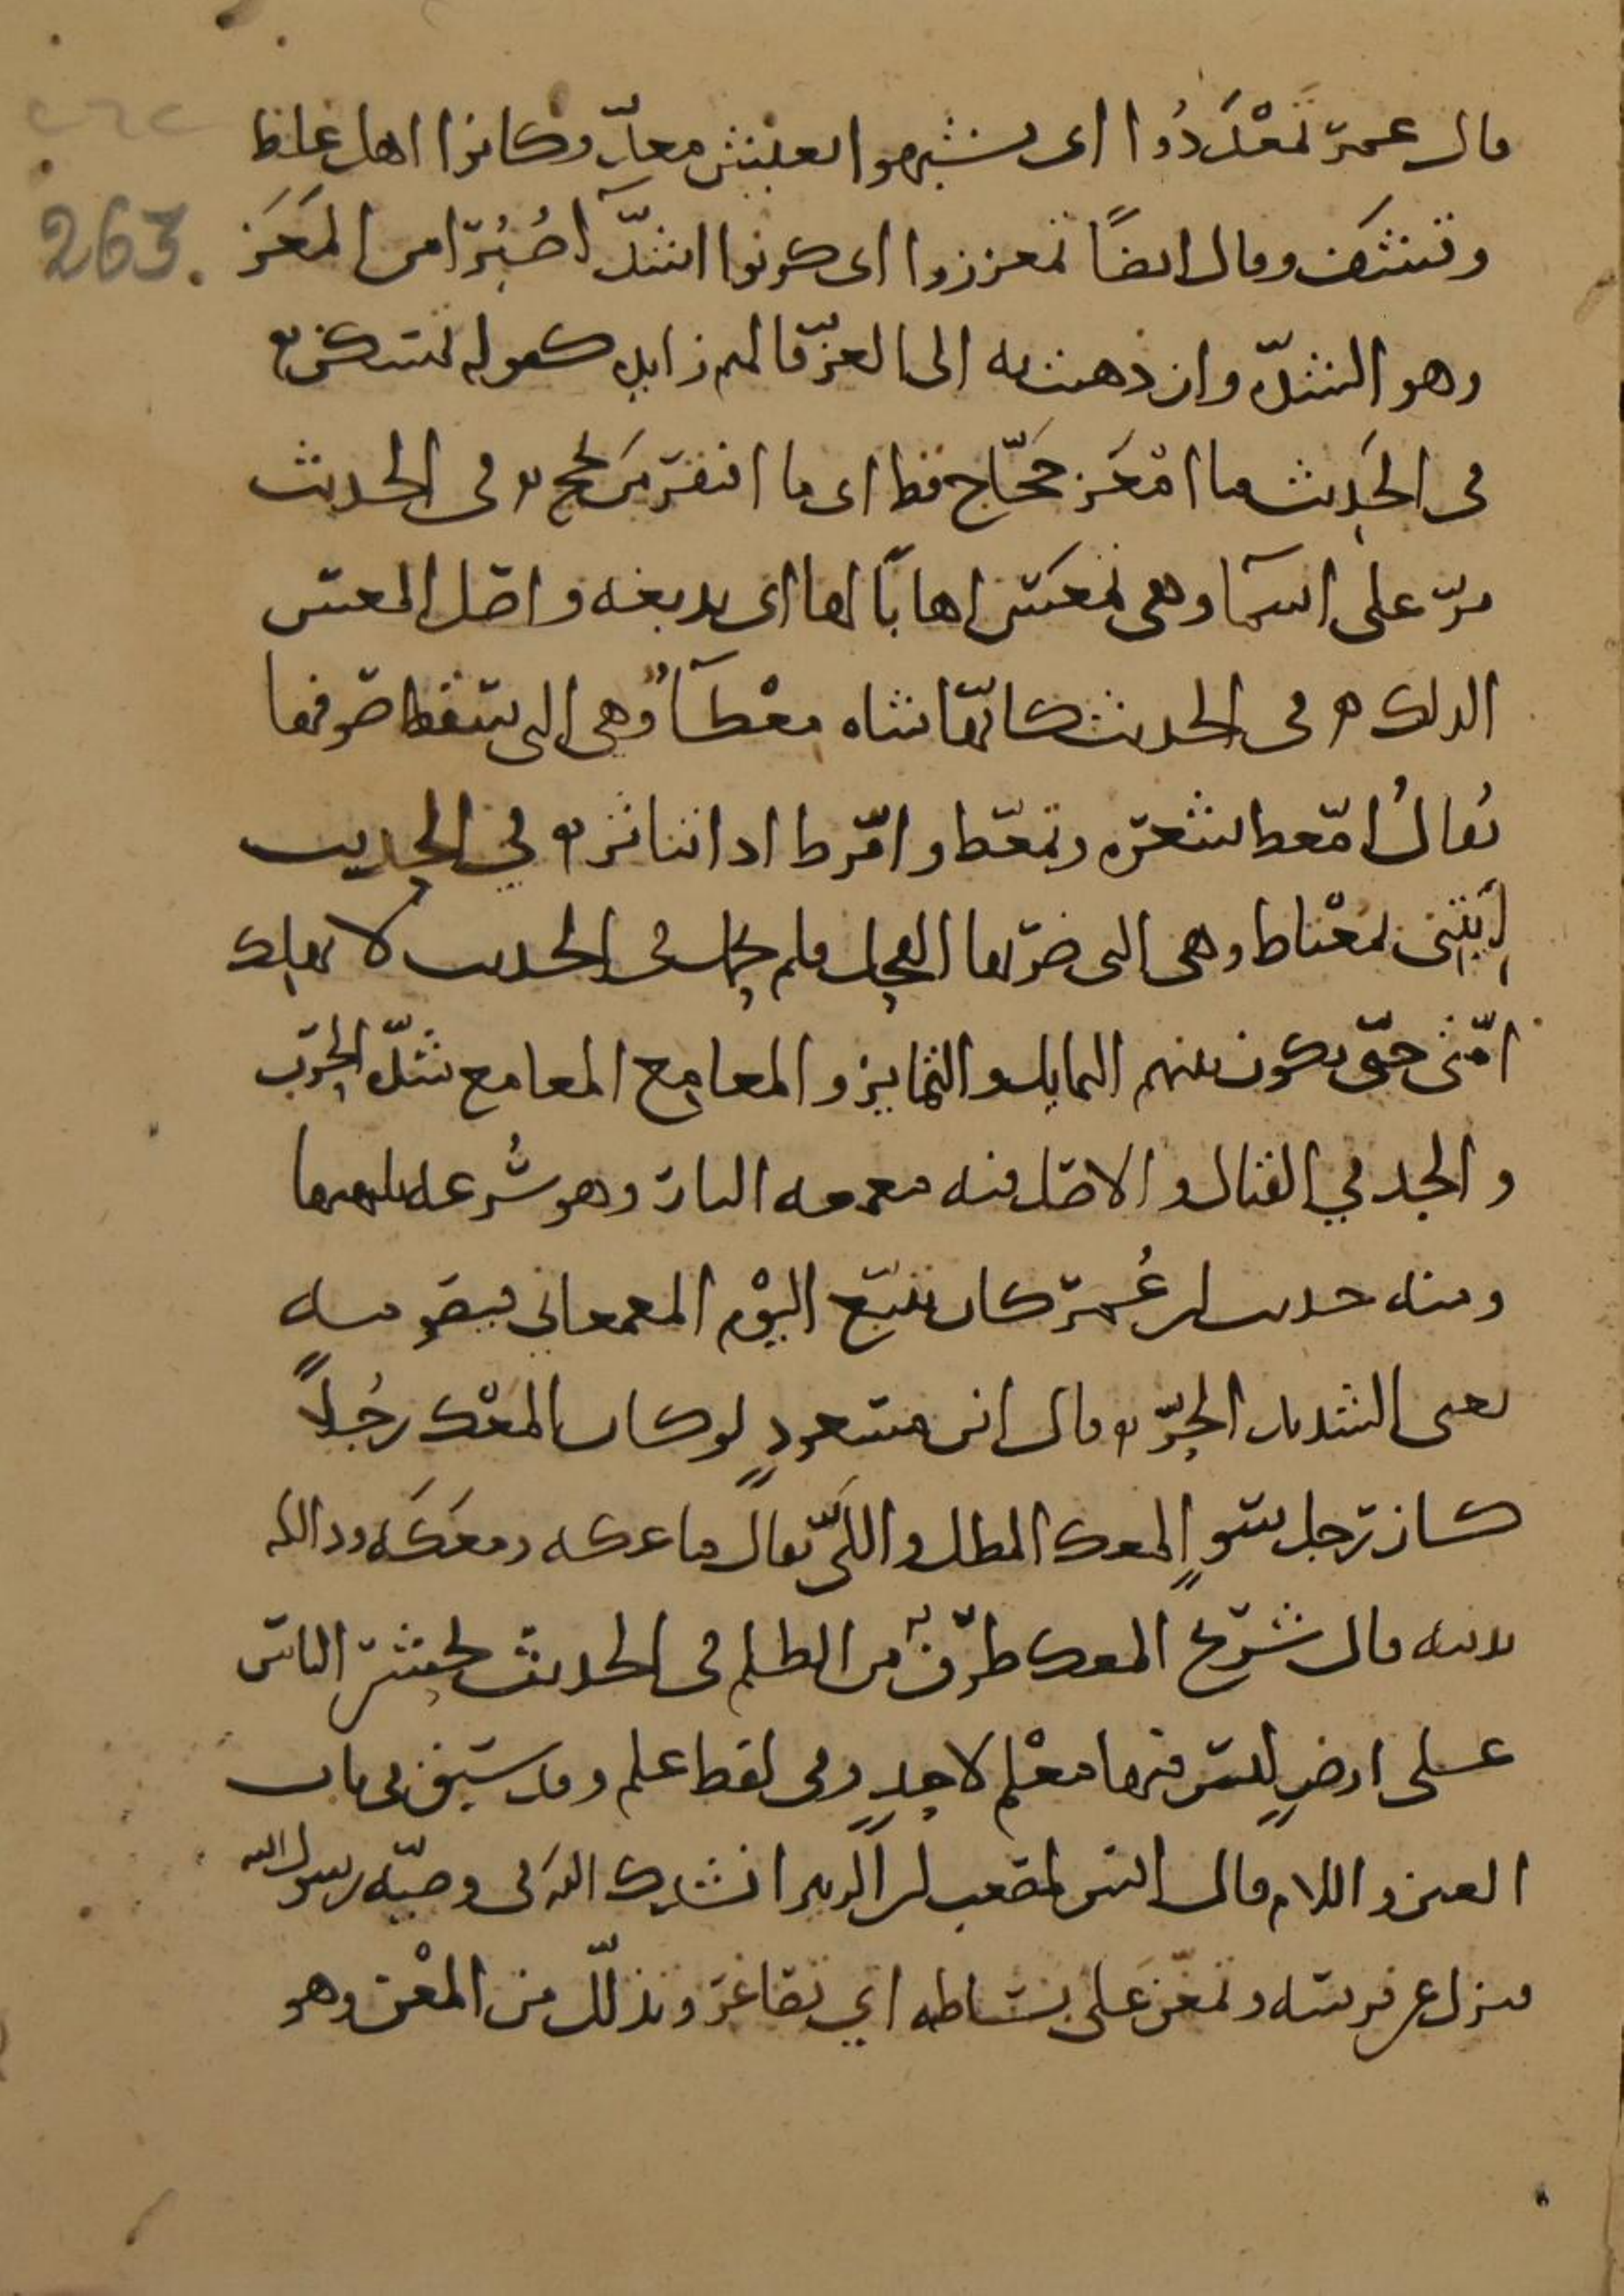 ٢٦٢
263.
قال عمر تَمَعْدَدُوا اى تشبهوا بعيش معدّ وكانوا اهل غلظ
وقشف وقال ايضًا تمعززوا اى كونوا اشدّآ صُبُرًا من المَعَز
وهو الشدّة وان ذهبت به الى العزّ فالميم زايدة كقوله تمسكن ه
فى الحديث ما امْعَر حجّاج قط اى ما افتقر من الحج ه فى الحديث
مرّ على اسمآ وهى تمعَس اهابًا لها اى تدبغه واصل المعس
الدلك ه فى الحديث كانّها شاه معْطآءُ وهى التى سقط صوفها
يُقالُ امّعط شعره وتمعّط وامّرط اذا تناثر ه في الحديث
اِيتني بمعْتاط وهى التى ضرّبها الفحل فلم تحمل فى الحديث لا تهلك
امّتى حتّى يكون بينهم التمايل والتمايز والمعامع المعامع شدّة الحرب
والجد في القتال والاصل فيه معمعه النار وهو سُرعه تلهبها
ومنه حديث ابن عُمر كان يتتبّع اليوْم المعمعاني فيصومه
يعنى الشديد الحرّ ه قال ابن مسعودٍ لو كان المعْك رجُلاً
كان رجل سوٍ المعك المطل واللَىّ يقال ماعكه ومعَكَه ودالكه
بدينه قال شريح المعك طرَفٌ من الظلم فى الحديث يحشر الناس
على ارضٍ ليس فيها معْلم لاحدٍ وفى لفظ علم وقد سبق فى باب
العين واللام قال انس لمصعب بن الزبير انشدك الله فى وصيّه رسول الله
فنزل عن فرسه وتمعّن على بساطه اي تصاغر وتذلّل من المعْن وهو